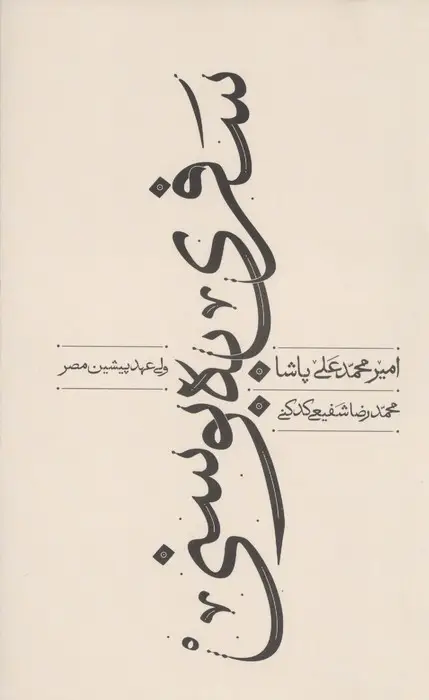 سفری به بوسنی
امیر محمّد علی پاشا ولی عهد پیشین مصر
محمّدرضا شفیعی کدکنی